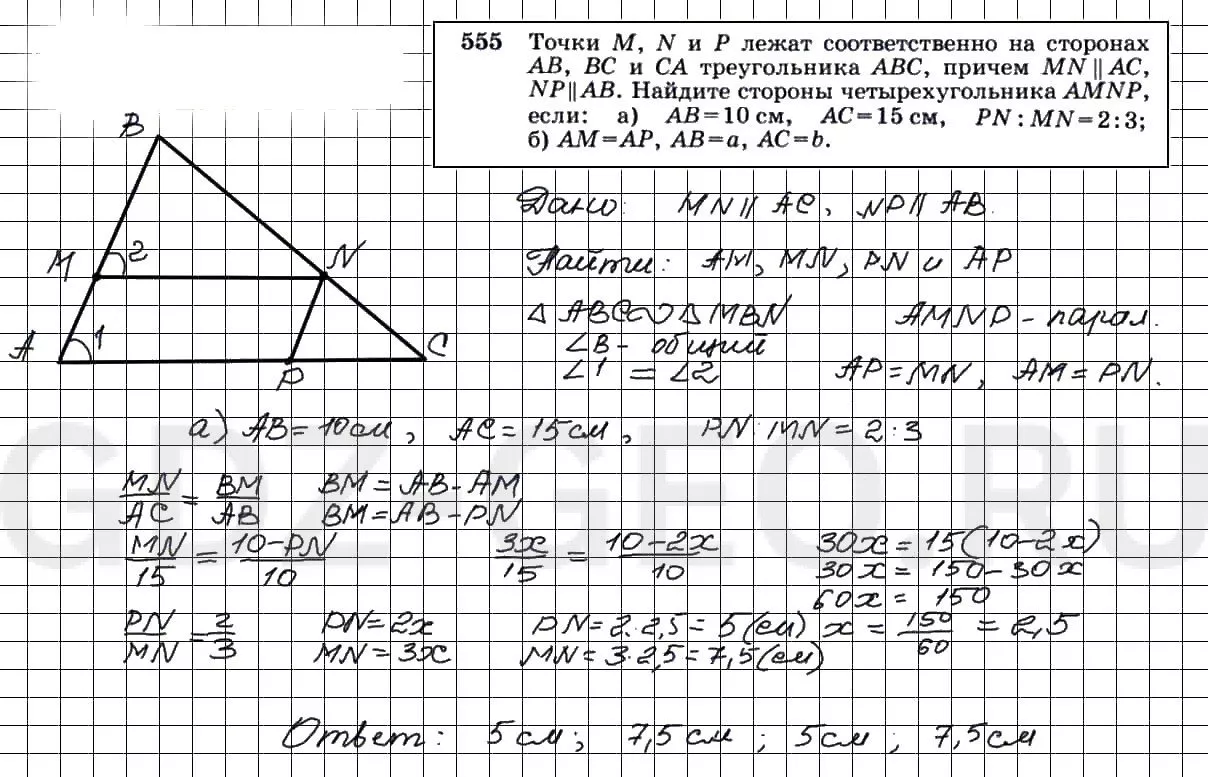 555 Точки M, N и P лежат соответственно на сторонах
AB, BC и CA треугольника ABC, причем MN || AC,
NP || AB. Найдите стороны четырехугольника AMNP,
если: а) AB=10 см, AC=15 см, PN : MN=2:3;
б) AM=AP, AB=a, AC=b.
B
Дано: MN || AC, NP || AB.
M 2 N
Найти: AM, MN, PN и AP
△ ABC ∾ △ MBN AMNP - парал.
A 1 C
∠B - общий
P
∠1 = ∠2 AP = MN, AM = PN.
а) AB = 10 см, AC = 15 см, PN : MN = 2 : 3
GDZ-GEO.RU
MN/AC = BM/AB BM = AB - AM
BM = AB - PN
MN/15 = 10-PN/10 3x/15 = 10-2x/10 30x = 15(10-2x)
30x = 150-30x
60x = 150
PN/MN = 2/3 PN = 2x PN = 2·2,5 = 5(см) x = 150/60 = 2,5
MN = 3x MN = 3·2,5 = 7,5(см)
Ответ: 5 см; 7,5 см; 5 см; 7,5 см